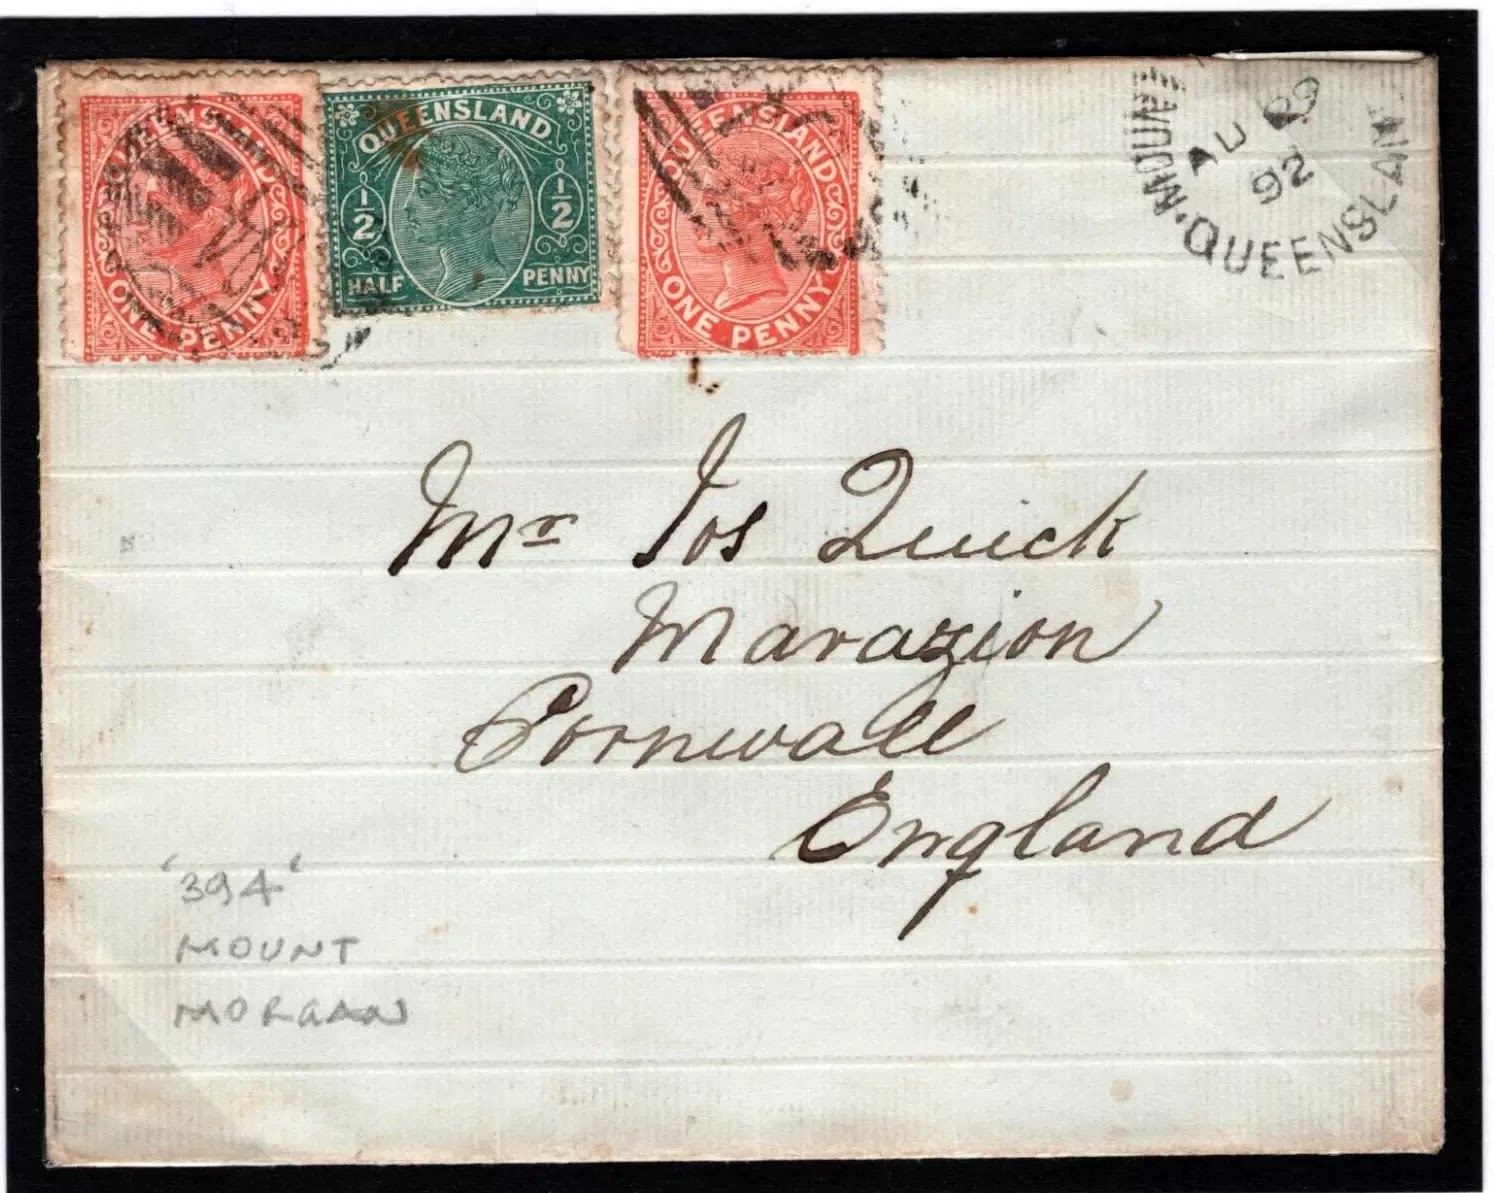 QUEENSLAND
ONE PENNY
QUEENSLAND
1/2 1/2
HALF PENNY
QUEENSLAND
ONE PENNY
MOUNT
92
QUEENSLAND
Mr Jos Quick
Marazion
Cornwall
England
'394'
MOUNT
MORGAN